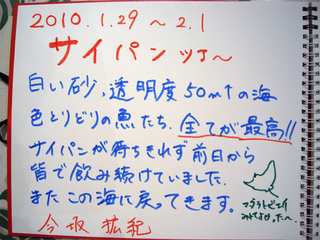 2010.1.29～2.1
サイパンツアー
白い砂、透明度50m↑の海
色とりどりの魚たち、全てが最高!!
サイパンが待ちきれず前日から
皆で飲み続けていました。
またこの海に戻ってきます。
マダラトビエイ
みてよかったー
今坂 拡紀